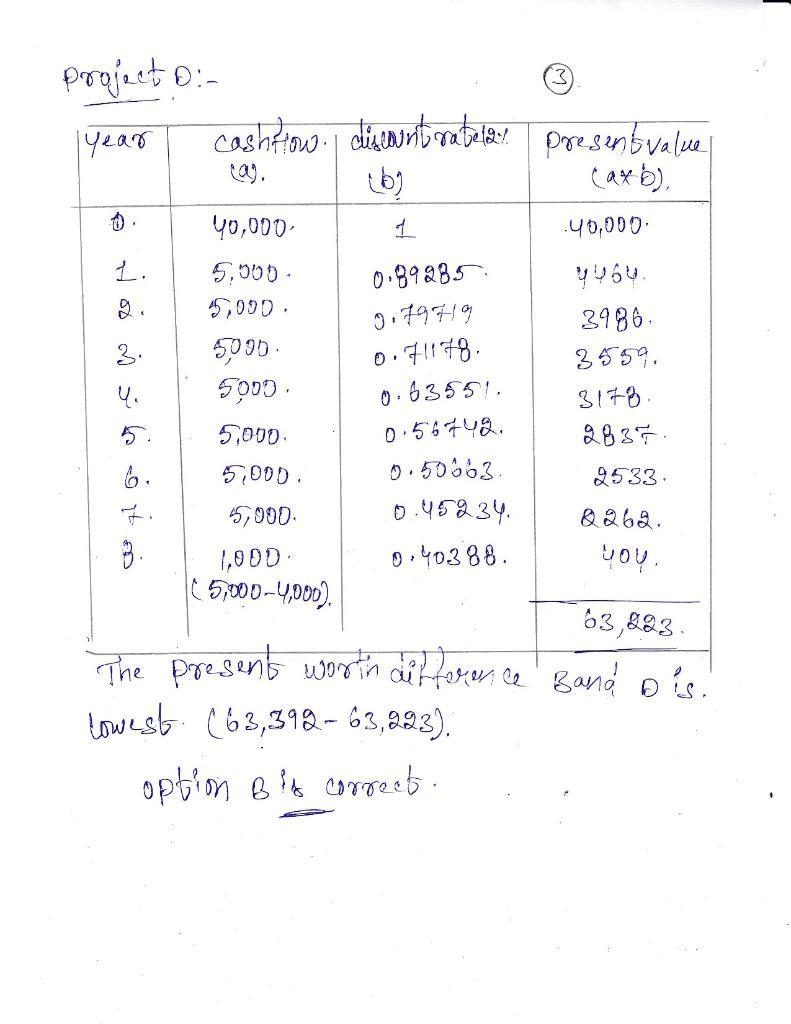 Project D:-
(3)
year cashflow. discount rate 12% present value
(a). (b) (a*b).
0. 40,000. 1 40,000.
1. 5,000. 0.89285. 4464.
2. 5,000. 0.79719 3986.
3. 5000. 0.71178. 3559.
4. 5000. 0.63551. 3178.
5. 5,000. 0.56742. 2837.
6. 5,000. 0.50663. 2533.
7. 5,000. 0.45234. 2262.
8. 1,000. 0.40388. 404.
(5,000-4,000).
63,223.
The present worth difference B and D is.
lowest. (63,392-63,223).
option B is correct.